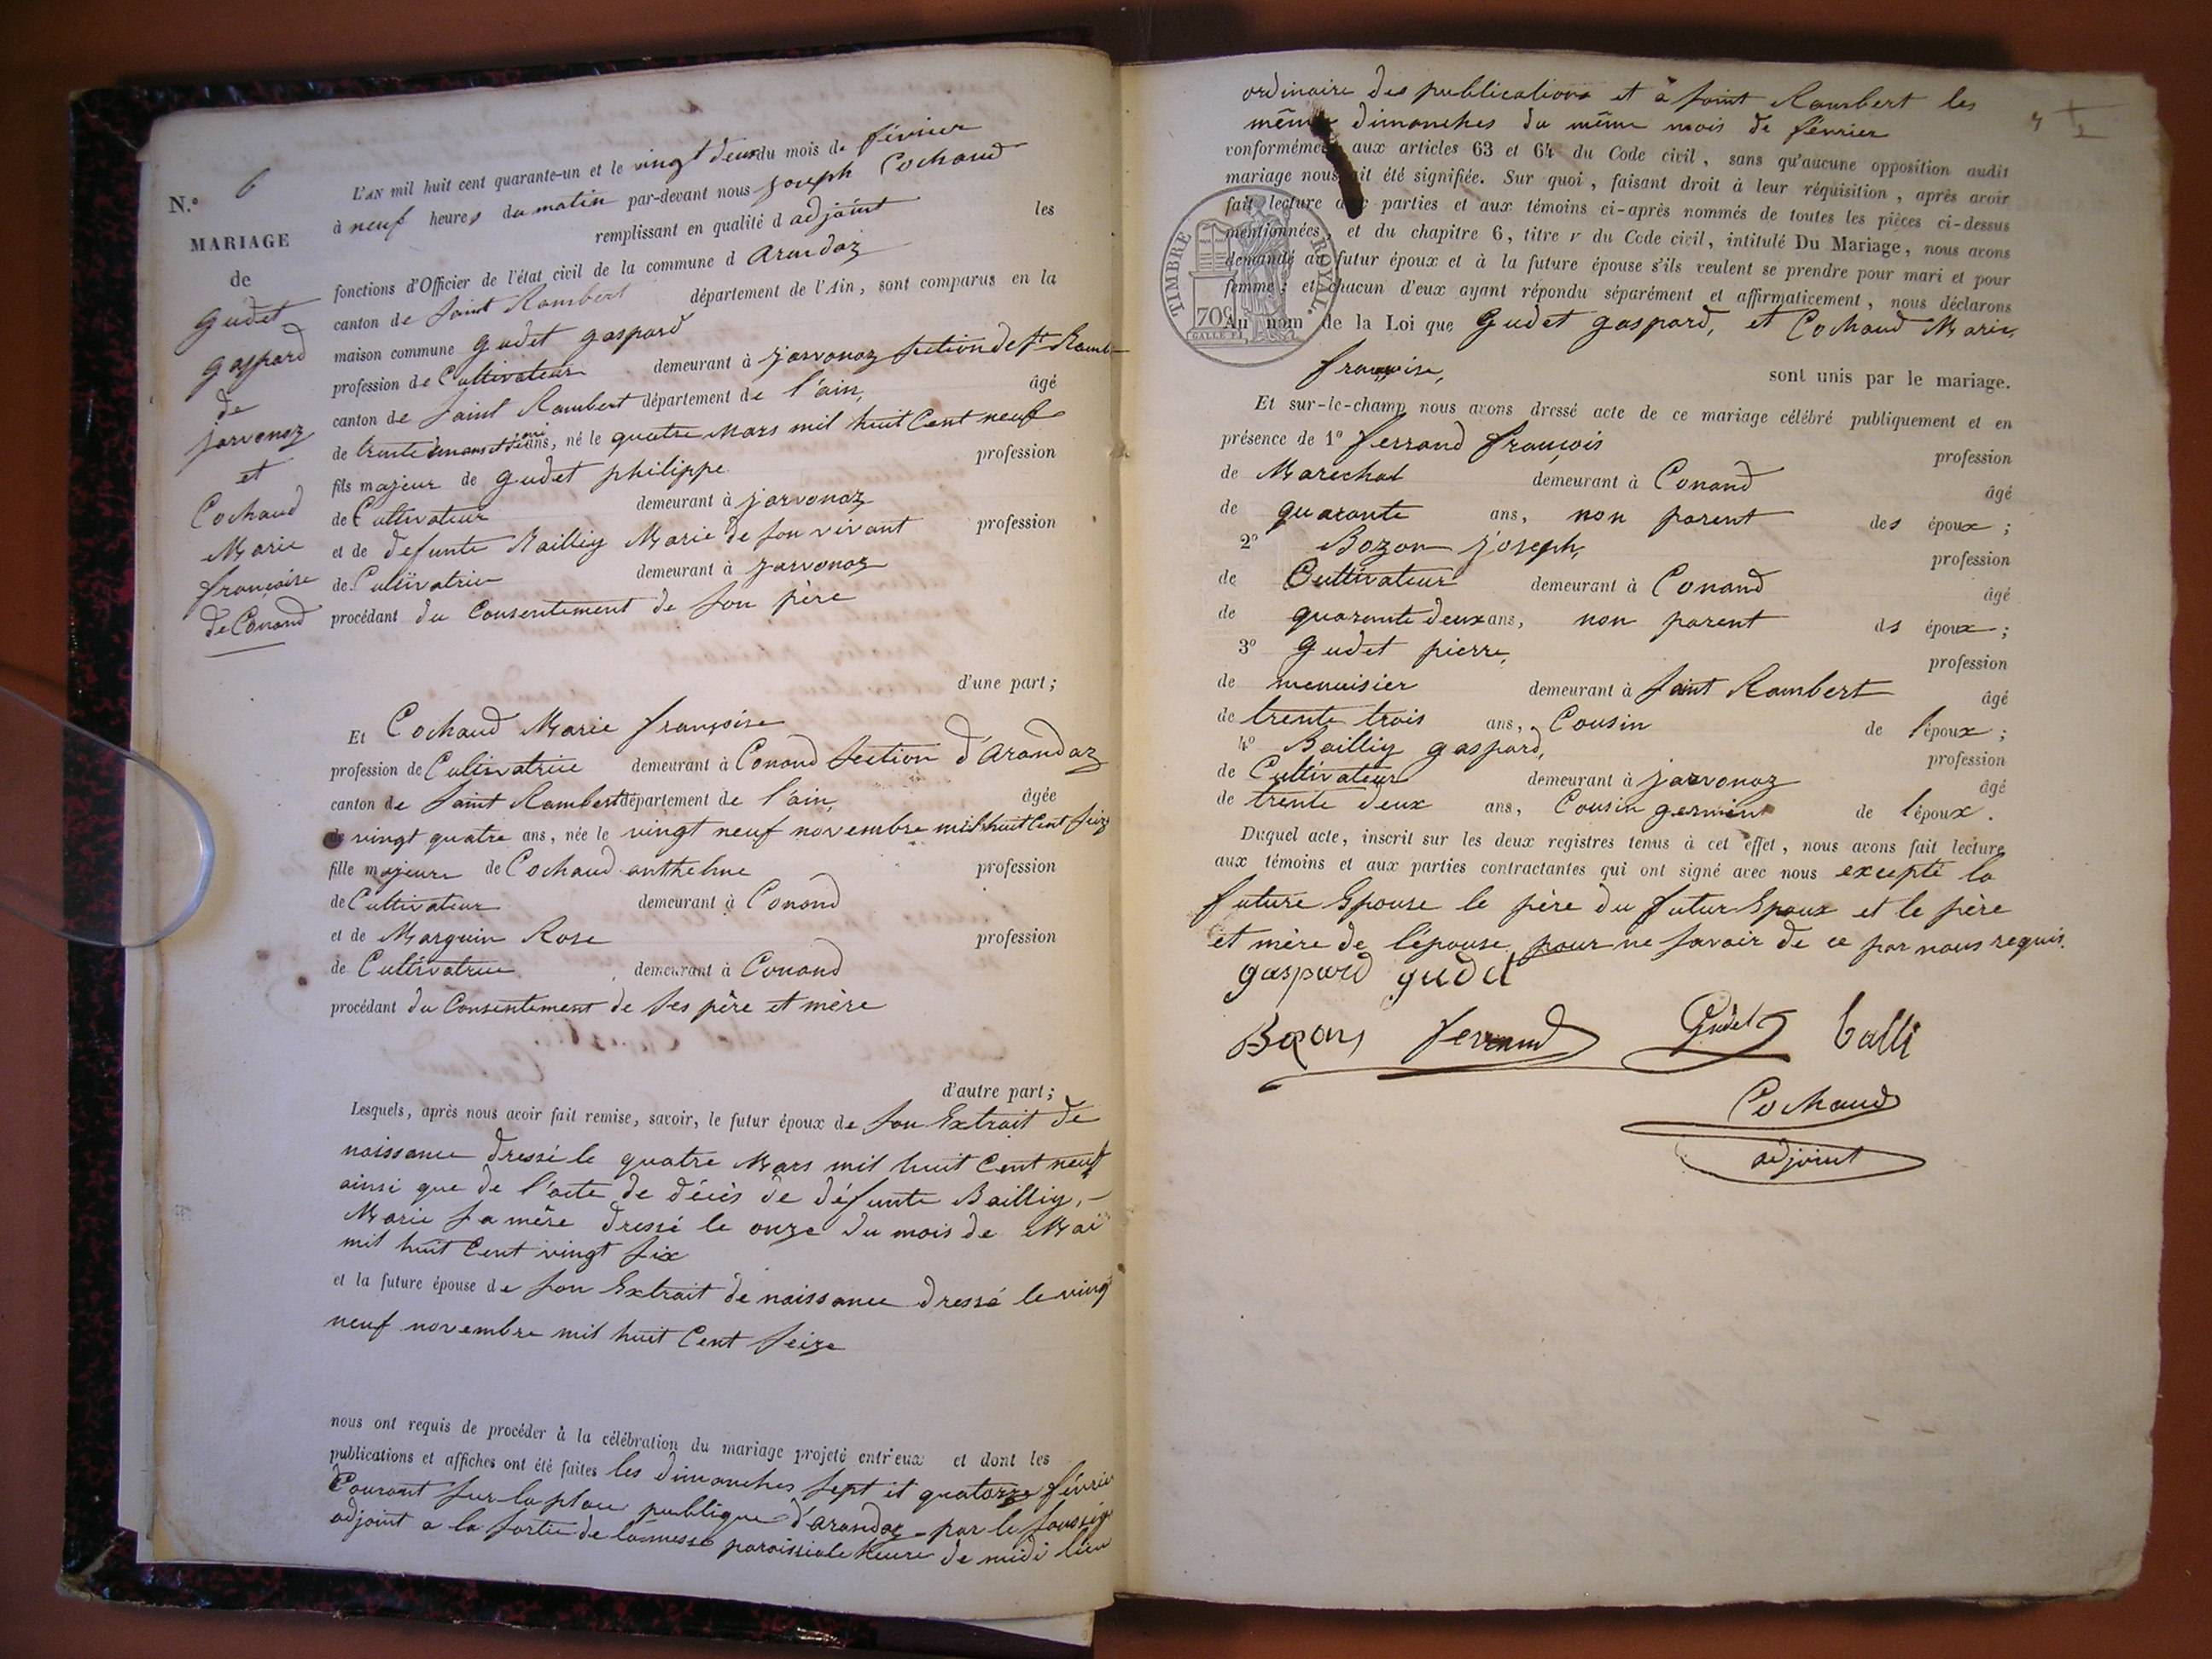 N.º 6
MARIAGE
de
Gudet
gaspard
de
jarvonoz
et
Cochaud
Marie
françoise
de Conand
L'AN mil huit cent quarante-un et le vingt deux du mois de février
à neuf heures du matin par-devant nous joseph Cochaud
remplissant en qualité d adjoint les
fonctions d'Officier de l'état civil de la commune d Arandaz
canton de Saint Rambert département de l'Ain, sont comparus en la
maison commune Gudet gaspard
profession de Cultivateur demeurant à jarvonoz Section de St Ramb
canton de Saint Rambert département de l'ain, âgé
de trente ans, né le quatre Mars mil huit Cent neuf
fils majeur de Gudet philippe profession
de Cultivateur demeurant à jarvonoz
et de defunte Bailliy Marie de son vivant profession
de Cultivatrice demeurant à jarvonoz
procédant du Consentement de son père
d'une part;
Et Cochaud Marie françoise
profession de Cultivatrice demeurant à Conand Section d'Arandaz
canton de Saint Rambert département de l'ain, âgée
de vingt quatre ans, née le vingt neuf novembre mil huit Cent Seiz
fille majeure de Cochaud anthelme profession
de Cultivateur demeurant à Conand
et de Marguin Rose profession
de Cultivatrice demeurant à Conand
procédant du Consentement de ses père et mère
d'autre part;
Lesquels, après nous avoir fait remise, savoir, le futur époux de son Extrait de
naissance dressé le quatre Mars mil huit Cent neuf
ainsi que de l'acte de décès de défunte Bailliy,
Marie sa mère dressé le onze du mois de Mai
mil huit Cent vingt six
et la future épouse de son Extrait de naissance dressé le vingt
neuf novembre mil huit Cent Seize
nous ont requis de procéder à la célébration du mariage projeté entr'eux et dont les
publications et affiches ont été faites les dimanches sept et quatorze février
Courant sur la place publique d'arandaz par le soussig
adjoint a la sortie de la messe paroissiale heure de midi lieu
ordinaire des publications et à Saint Rambert les
même dimanches du même mois de février
conformément aux articles 63 et 64 du Code civil, sans qu'aucune opposition audit
mariage nous ait été signifiée. Sur quoi, faisant droit à leur réquisition, après avoir
fait lecture aux parties et aux témoins ci-après nommés de toutes les pièces ci-dessus
mentionnées, et du chapitre 6, titre v du Code civil, intitulé Du Mariage, nous avons
demandé au futur époux et à la future épouse s'ils veulent se prendre pour mari et pour
femme; et chacun d'eux ayant répondu séparément et affirmativement, nous déclarons
Au nom de la Loi que Gudet gaspard, et Cochaud Marie,
françoise, sont unis par le mariage.
TIMBRE ROYAL.
70c
Et sur-le-champ nous avons dressé acte de ce mariage célébré publiquement et en
présence de 1º ferrand françois profession
de Marechal demeurant à Conand âgé
de quarante ans, non parent des époux;
2º Bozon joseph, profession
de Cultivateur demeurant à Conand âgé
de quarante deux ans, non parent ds époux;
3º Gudet pierre, profession
de menuisier demeurant à Saint Rambert âgé
de trente trois ans, Cousin de l'époux;
4º Bailliy gaspard, profession
de Cultivateur demeurant à jarvonoz âgé
de trente deux ans, Cousin germin de l'époux.
Duquel acte, inscrit sur les deux registres tenus à cet effet, nous avons fait lecture
aux témoins et aux parties contractantes qui ont signé avec nous excepté la
future Epouse le père du futur Epoux et le père
et mère de l'épouse pour ne savoir de ce par nous requis.
gaspard gudet
Bozon ferrand Gudet balli
Cochaud
adjoint